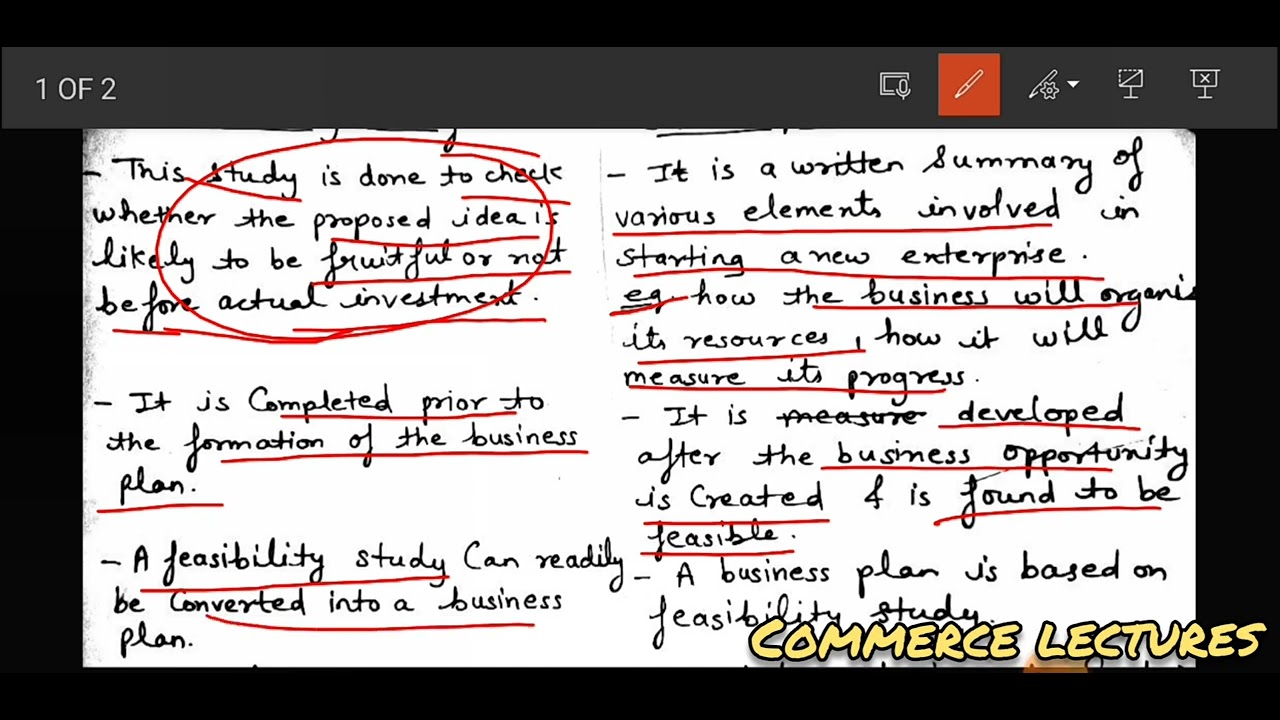 1 OF 2
- This study is done to check
whether the proposed idea is
likely to be fruitful or not
before actual investment.
- It is Completed prior to
the formation of the business
plan.
- A feasibility study Can readily
be Converted into a business
plan.
- It is a written Summary of
various elements involved in
starting a new enterprise.
eg. how the business will organi
its resources, how it will
measure its progress.
- It is measure developed
after the business opportunity
is Created & is found to be
feasible.
- A business plan is based on
feasibility study.
COMMERCE LECTURES